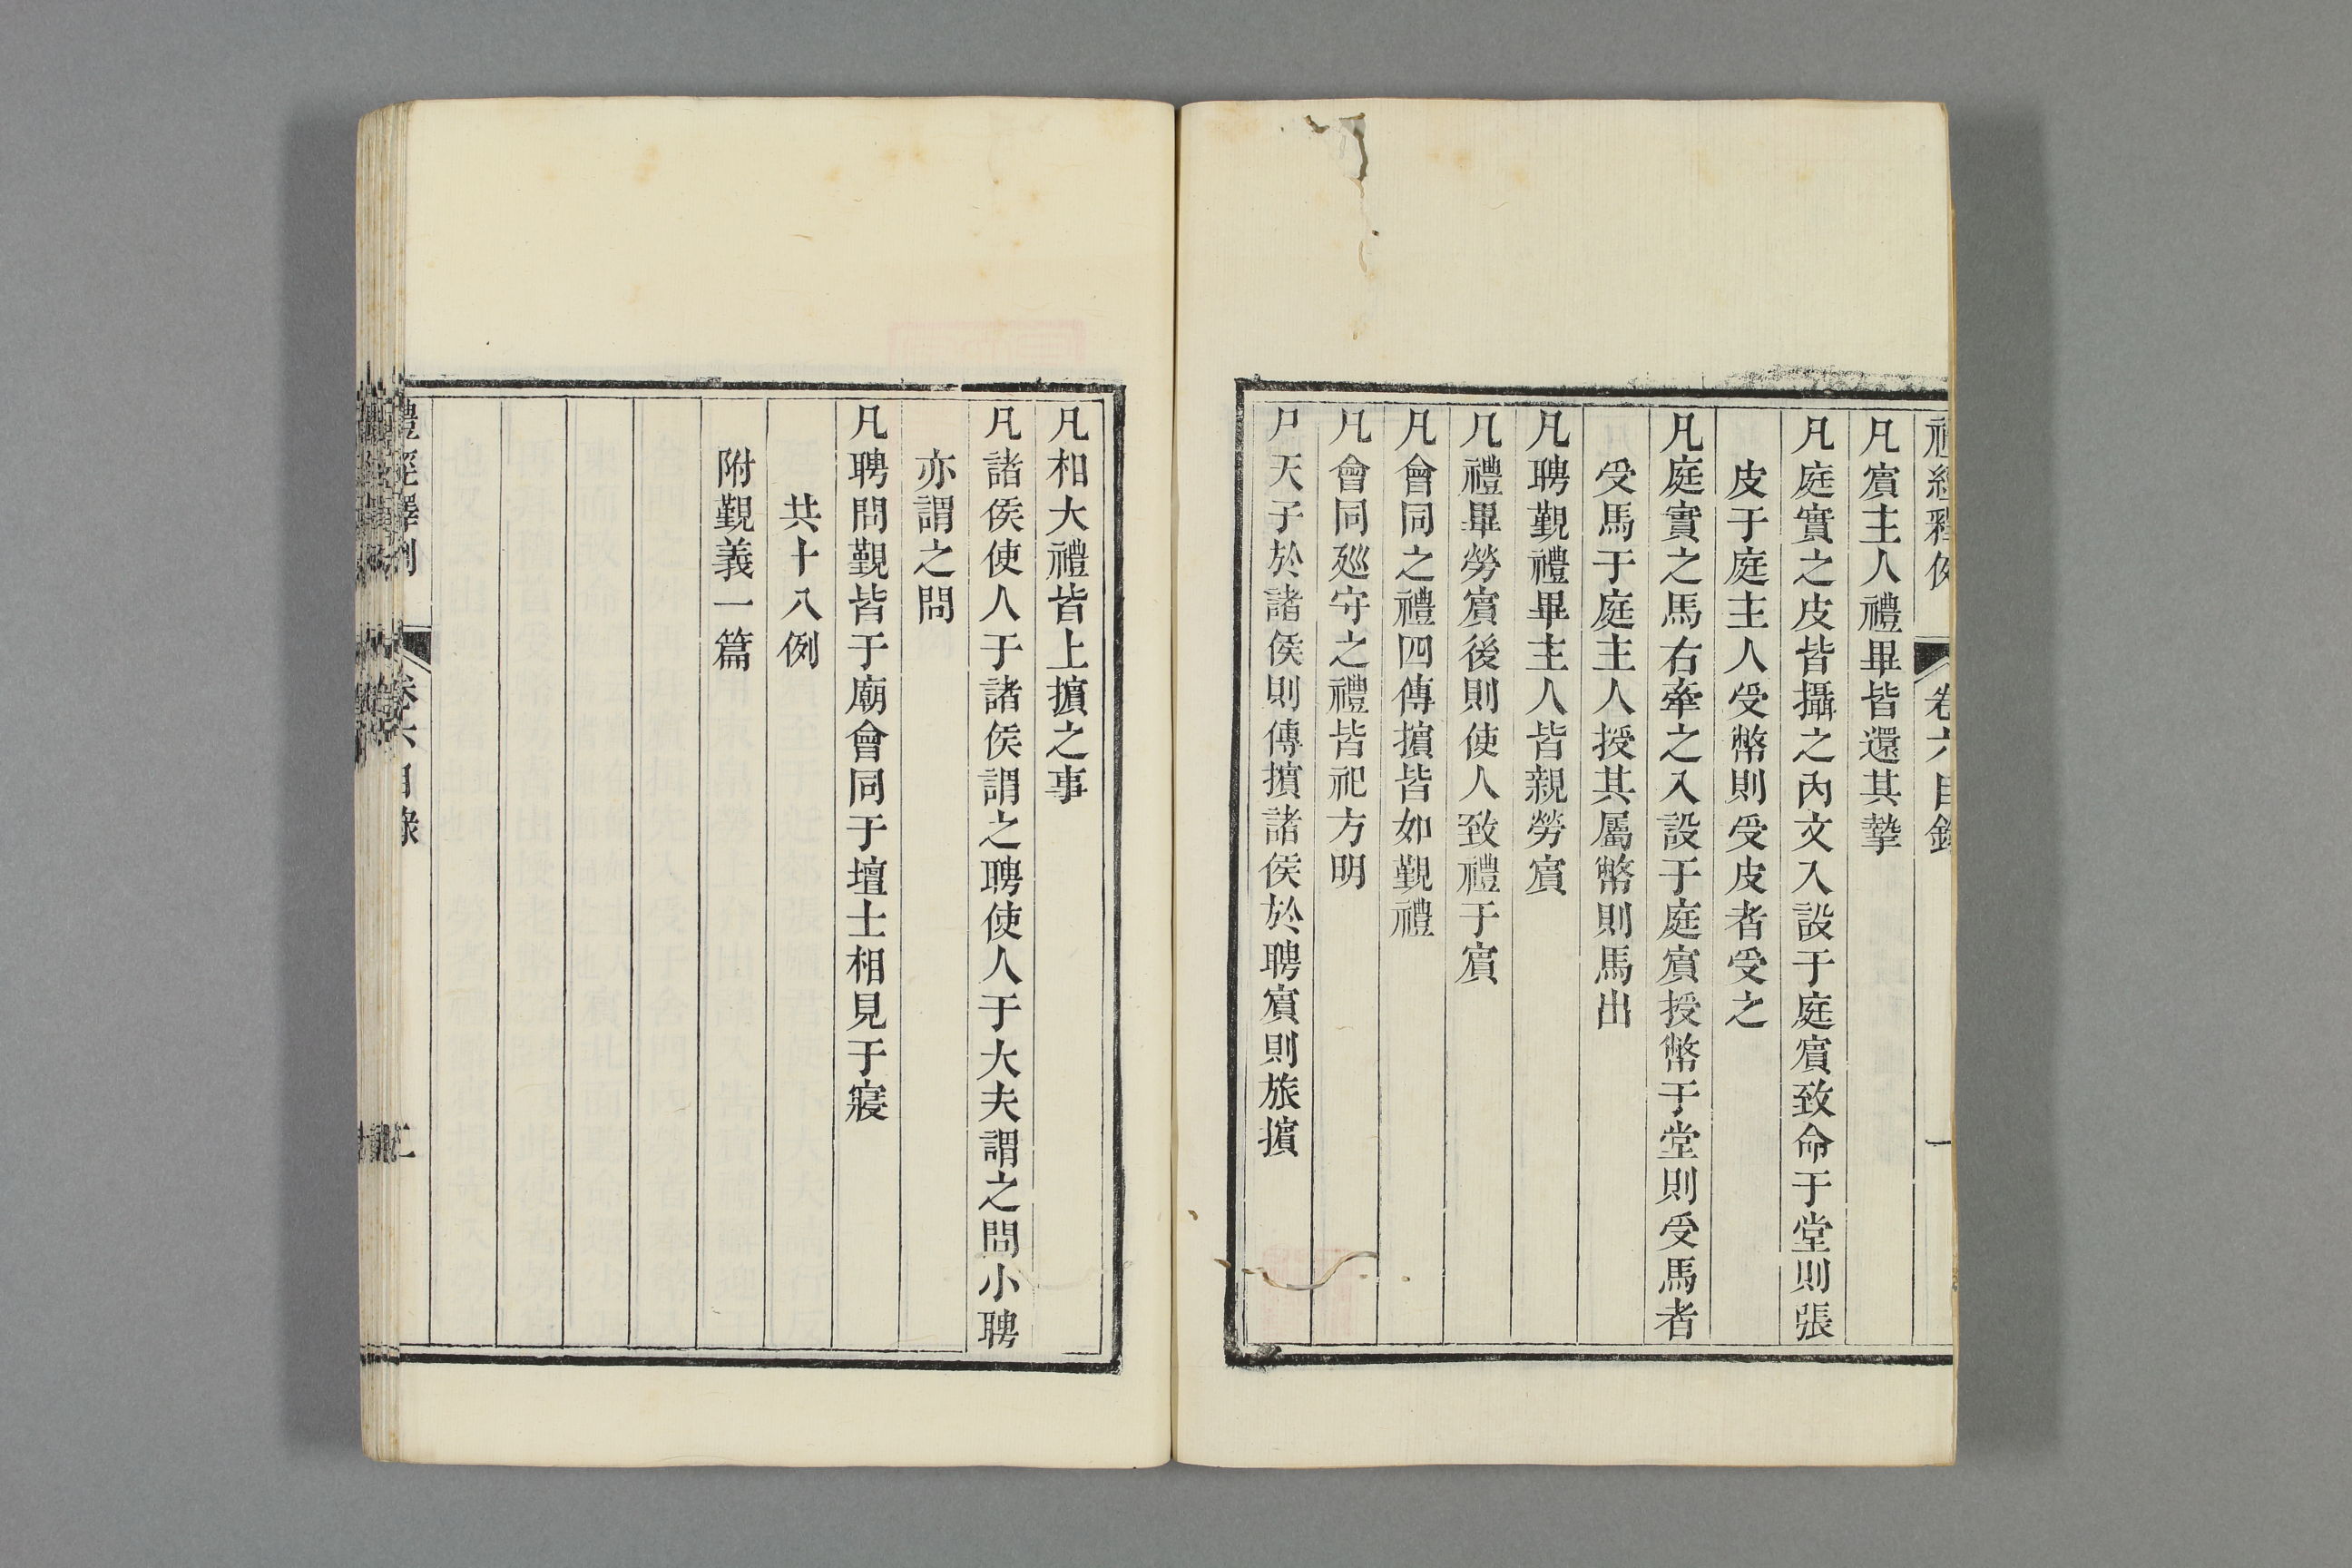 禮經釋例 卷六目錄 一
凡賓主人禮畢皆還其摯
凡庭實之皮皆攝之內文入設于庭賓致命于堂則張
皮于庭主人受幣則受皮者受之
凡庭實之馬右牽之入設于庭賓授幣于堂則受馬者
受馬于庭主人授其屬幣則馬出
凡聘覲禮畢主人皆親勞賓
凡禮畢勞賓後則使人致禮于賓
凡會同之禮四傳擯皆如覲禮
凡會同廵守之禮皆祀方明
凡天子於諸侯則傳擯諸侯於聘賓則旅擯
凡相大禮皆上擯之事
凡諸侯使人于諸侯謂之聘使人于大夫謂之問小聘
亦謂之問
凡聘問覲皆于廟會同于壇士相見于寢
共十八例
附覲義一篇
禮經釋例 卷六目錄 二